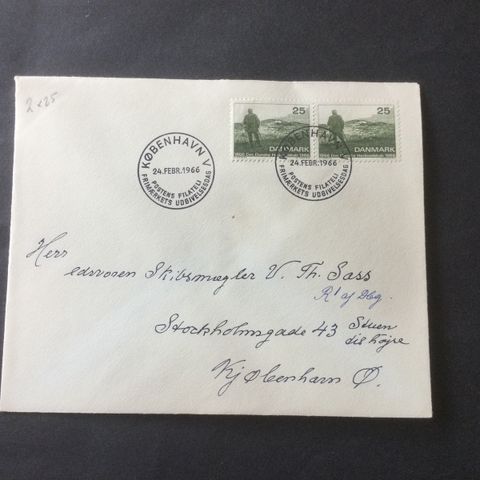 2 x 25
25 25
DANMARK DANMARK
1866 Det Danske Hedeselskab 1966
KØBENHAVN V
24.FEBR.1966
POSTENS FILATELI
FRIMÆRKETS UDGIVELSESDAG
KØBENHAVN V
24.FEBR.1966
POSTENS FILATELI
FRIMÆRKETS UDGIVELSESDAG
Herr
edsvoren Skibsmægler V. Th. Sass
R1 af Dbg.
Stockholmsgade 43 Stuen
til højre
Kjøbenhavn Ø.